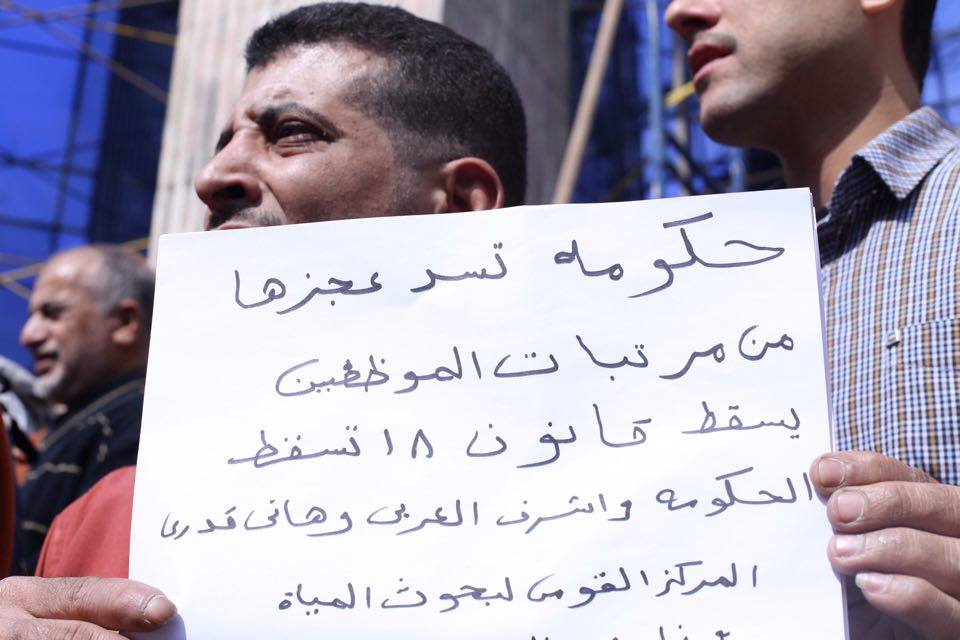 حكومه تسد عجزها
من مرتبات الموظفين
يسقط قانون ١٨ تسقط
الحكومه واشرف العربى وهانى قدرى
المركز القومى لبحوث المياة